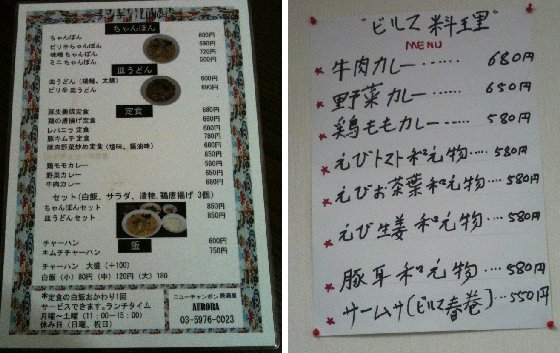 ランチ(Lunch)
ちゃんぽん
ちゃんぽん 600円
ピリ辛ちゃんぽん 690円
味噌ちゃんぽん 720円
ミニちゃんぽん 500円
皿うどん
皿うどん(揚麺、太麺) 600円
ピリ辛皿うどん 690円
定食
豚生姜焼定食 680円
鶏の唐揚げ定食 680円
レバニラ定食 680円
豚キムチ定食 780円
豚肉野菜炒め定食(塩味、醤油味) 680円
鶏モモカレー 680円
野菜カレー 650円
牛肉カレー 680円
セット(白飯、サラダ、漬物,鶏唐揚げ 3個)
ちゃんぽんセット 850円
皿うどんセット 850円
飯
チャーハン 600円
キムチチャーハン 750円
チャーハン 大盛(+100)
白飯(小)80円(中)120円(大)180
*定食の白飯おかわり1回
サービスできます。ランチタイム
月曜~土曜(11:00-15:00)
休み日(日曜、祝日)
ニューチャンポン居酒屋
AURORA
03-5976-0023
"ビルマ 料理"
MENU
★牛肉カレー……680円
★野菜カレー……650円
★鶏ももカレー……580円
★えびトマト和え物……580円
★えびお茶葉和え物……580円
★えび生姜和え物……580円
★豚耳和え物……580円
★サームサ(ビルマ春巻)……550円